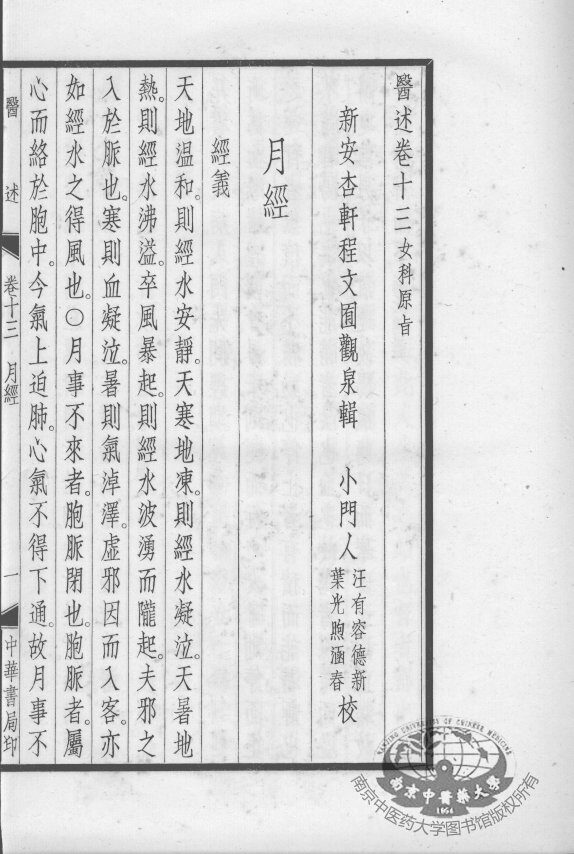 醫述卷十三 女科原旨
新安杏軒程文囿觀泉輯 小門人 汪有容德新 葉光煦涵春 校
月經
經義
天地温和。則經水安靜。天寒地凍。則經水凝泣。天暑地
熱。則經水沸溢。卒風暴起。則經水波湧而隴起。夫邪之
入於脈也。寒則血凝泣。暑則氣淖澤。虛邪因而入客。亦
如經水之得風也。○月事不來者。胞脈閉也。胞脈者。屬
心而絡於胞中。今氣上迫肺。心氣不得下通。故月事不
醫述 卷十三 月經 一 中華書局印
NANJING UNIVERSITY OF CHINESE MEDICINE
南京中醫藥大學
1954
南京中医药大学图书馆版权所有